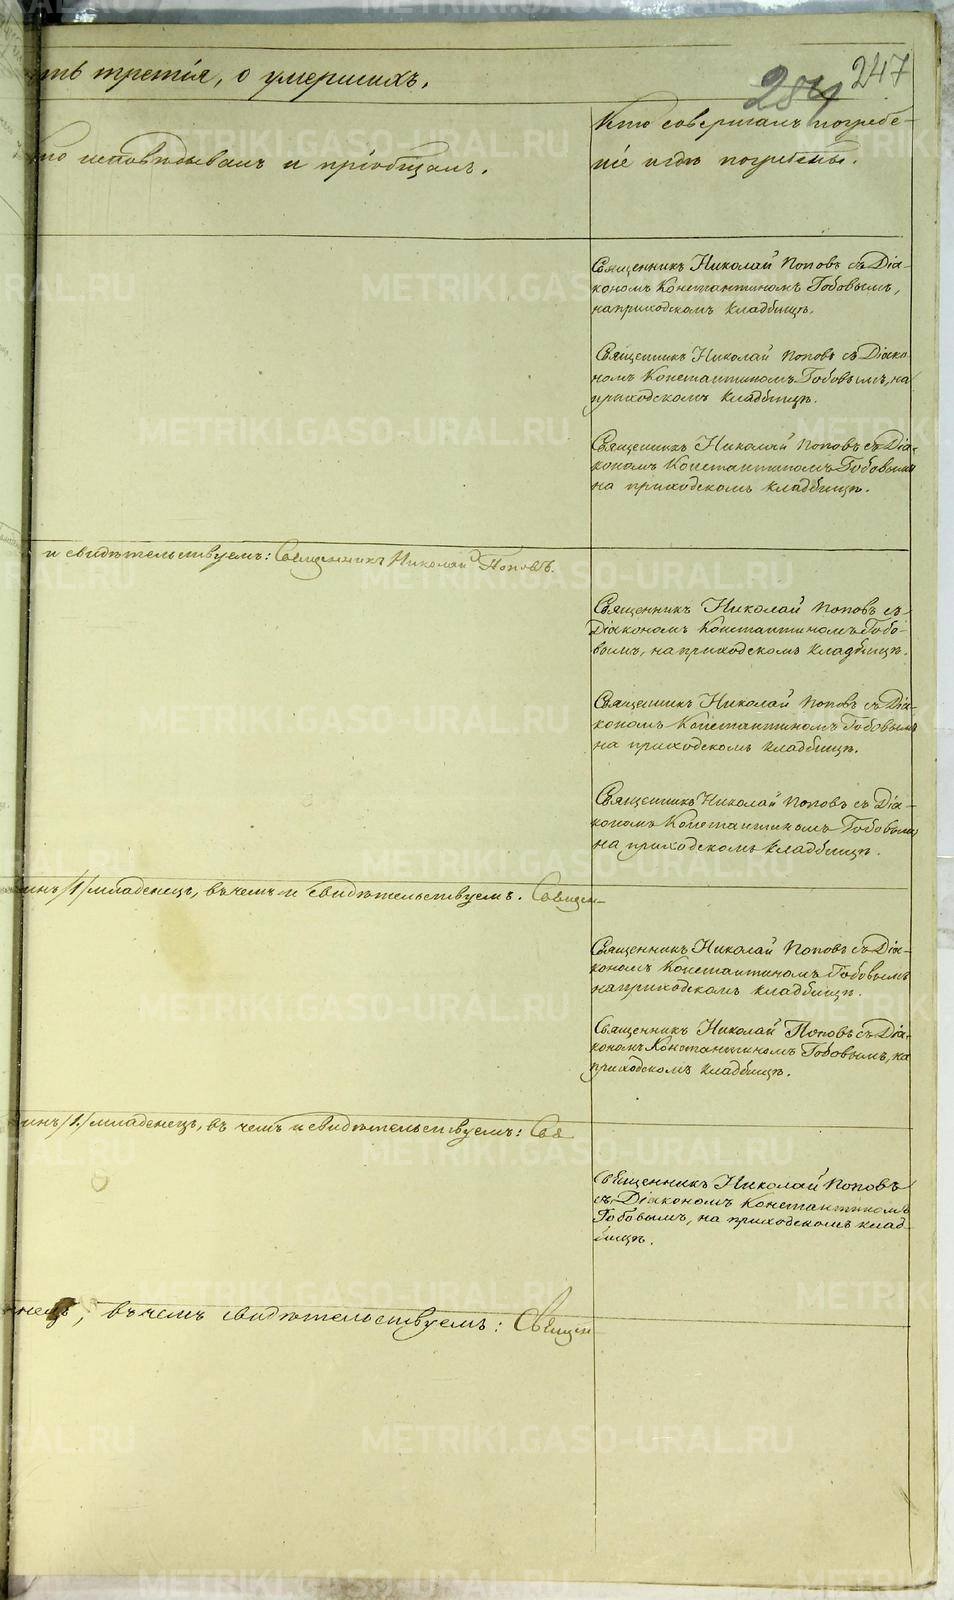 ть третія, о умершихъ.
284 247
то исповѣдывалъ и пріобщалъ.
Кто совершалъ погребе-
ніе и гдѣ погребены.
Священникъ Николай Поповъ съ Діа-
кономъ Константиномъ Гобовымъ,
на приходскомъ кладбищѣ.
Священникъ Николай Поповъ съ Діако
номъ Константиномъ Гобовымъ, на
приходскомъ кладбищѣ.
Священникъ Николай Поповъ съ Діа-
кономъ Константиномъ Гобовымъ
на приходскомъ кладбищѣ.
и свидѣтельствуемъ: Священникъ Николай Поповъ.
Священникъ Николай Поповъ съ
Діакономъ Константиномъ Гобо-
вымъ, на приходскомъ кладбищѣ.
Священникъ Николай Поповъ съ Діа-
кономъ Константиномъ Гобовымъ
на приходскомъ кладбищѣ.
Священникъ Николай Поповъ съ Діа-
кономъ Константиномъ Гобовымъ
на приходскомъ кладбищѣ.
инъ /1/ младенецъ, въ чемъ и свидѣтельствуемъ. Священ-
Священникъ Николай Поповъ съ Діа-
кономъ Константиномъ Гобовымъ
на приходскомъ кладбищѣ.
Священникъ Николай Поповъ съ Діа-
кономъ Константиномъ Гобовымъ, на
приходскомъ кладбищѣ.
инъ /1./ младенецъ, въ чемъ и свидѣтельствуемъ: Свя
Священникъ Николай Поповъ
съ Діакономъ Константиномъ
Гобовымъ, на приходскомъ клад-
бищѣ.
нецъ, въ чемъ свидѣтельствуемъ: Священ
METRIKI.GASO-URAL.RU